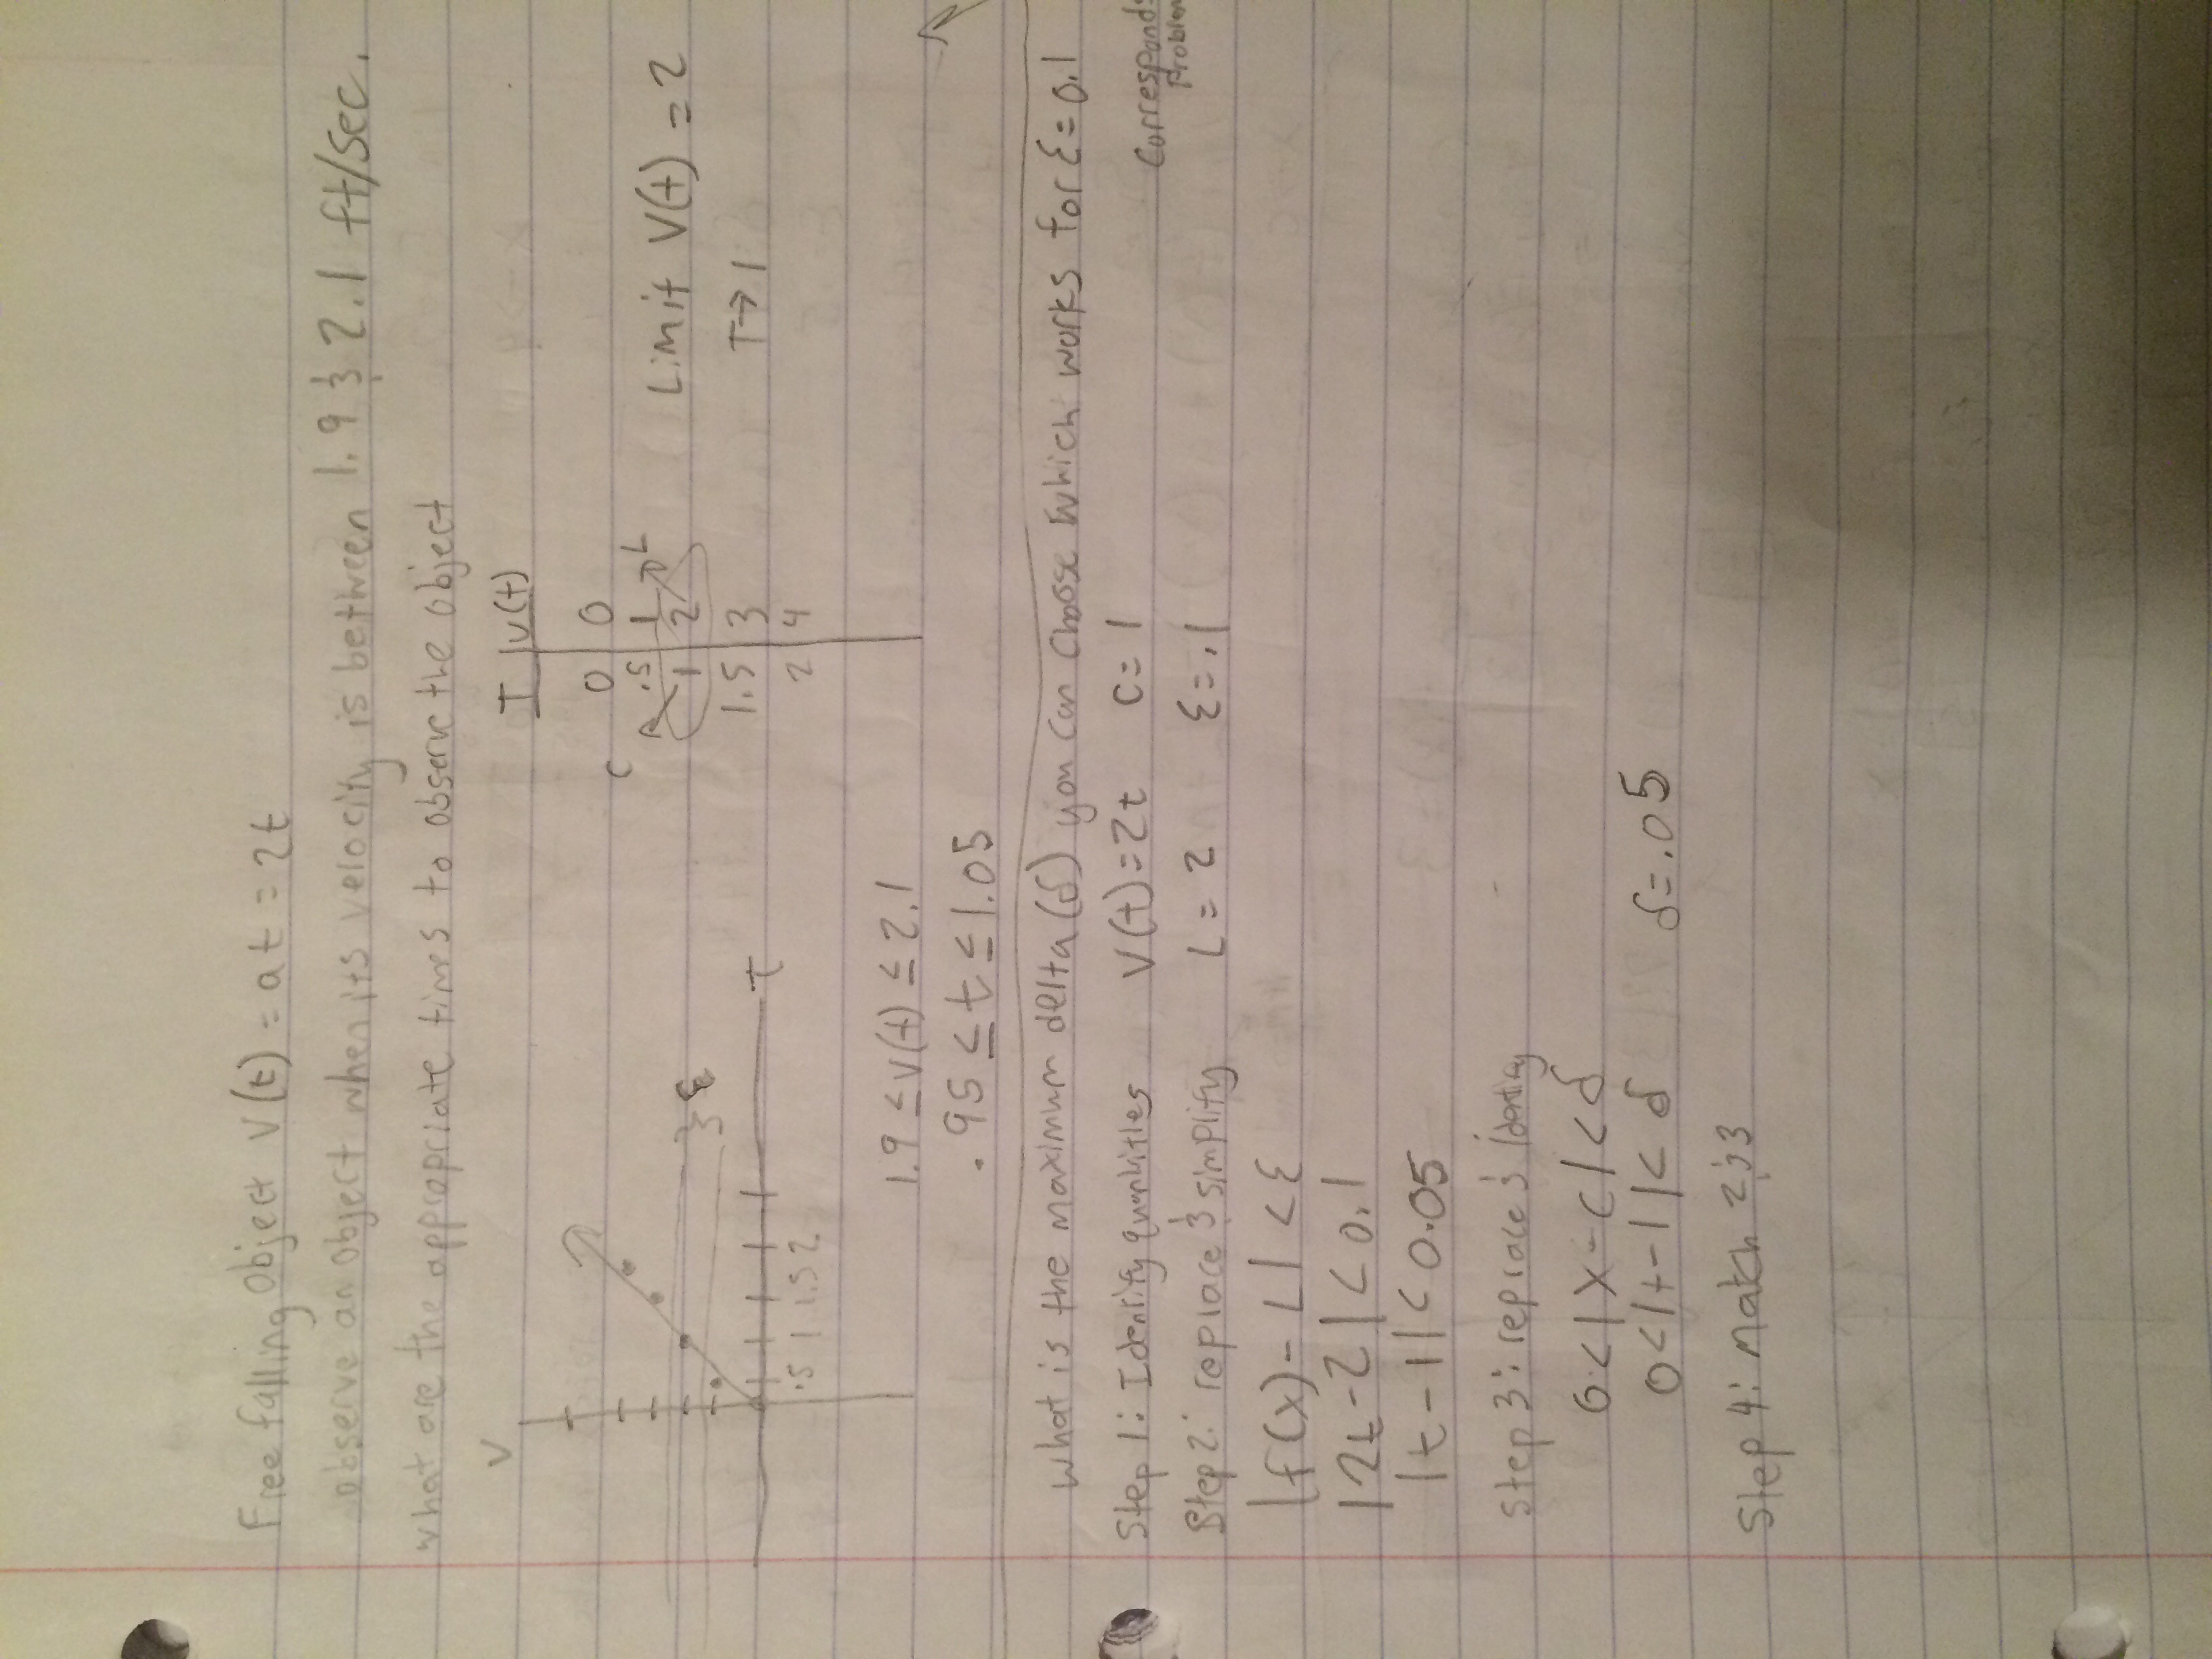 Free falling Object V(t) = at = 2t
observe an object when its velocity is between 1.9 & 2.1 ft/sec.
what are the appropriate times to observe the object
V
T | v(t)
0 | 0
.5 | 1
1 | 2
1.5 | 3
2 | 4
C
L
Limit V(t) = 2
T→1
ε
t
.5 1 1.5 2
1.9 ≤ V(t) ≤ 2.1
.95 ≤ t ≤ 1.05
What is the maximum delta (δ) you can choose which works for ε = 0.1
Step 1: Identify quantities V(t) = 2t C = 1
Corresponds
Problem
Step 2: replace & simplify L = 2 ε = .1
|f(x) - L| < ε
|2t - 2| < 0.1
|t - 1| < 0.05
Step 3: replace & identify
0 < |x - c| < δ
0 < |t - 1| < δ δ = .05
Step 4: Match 2 & 3